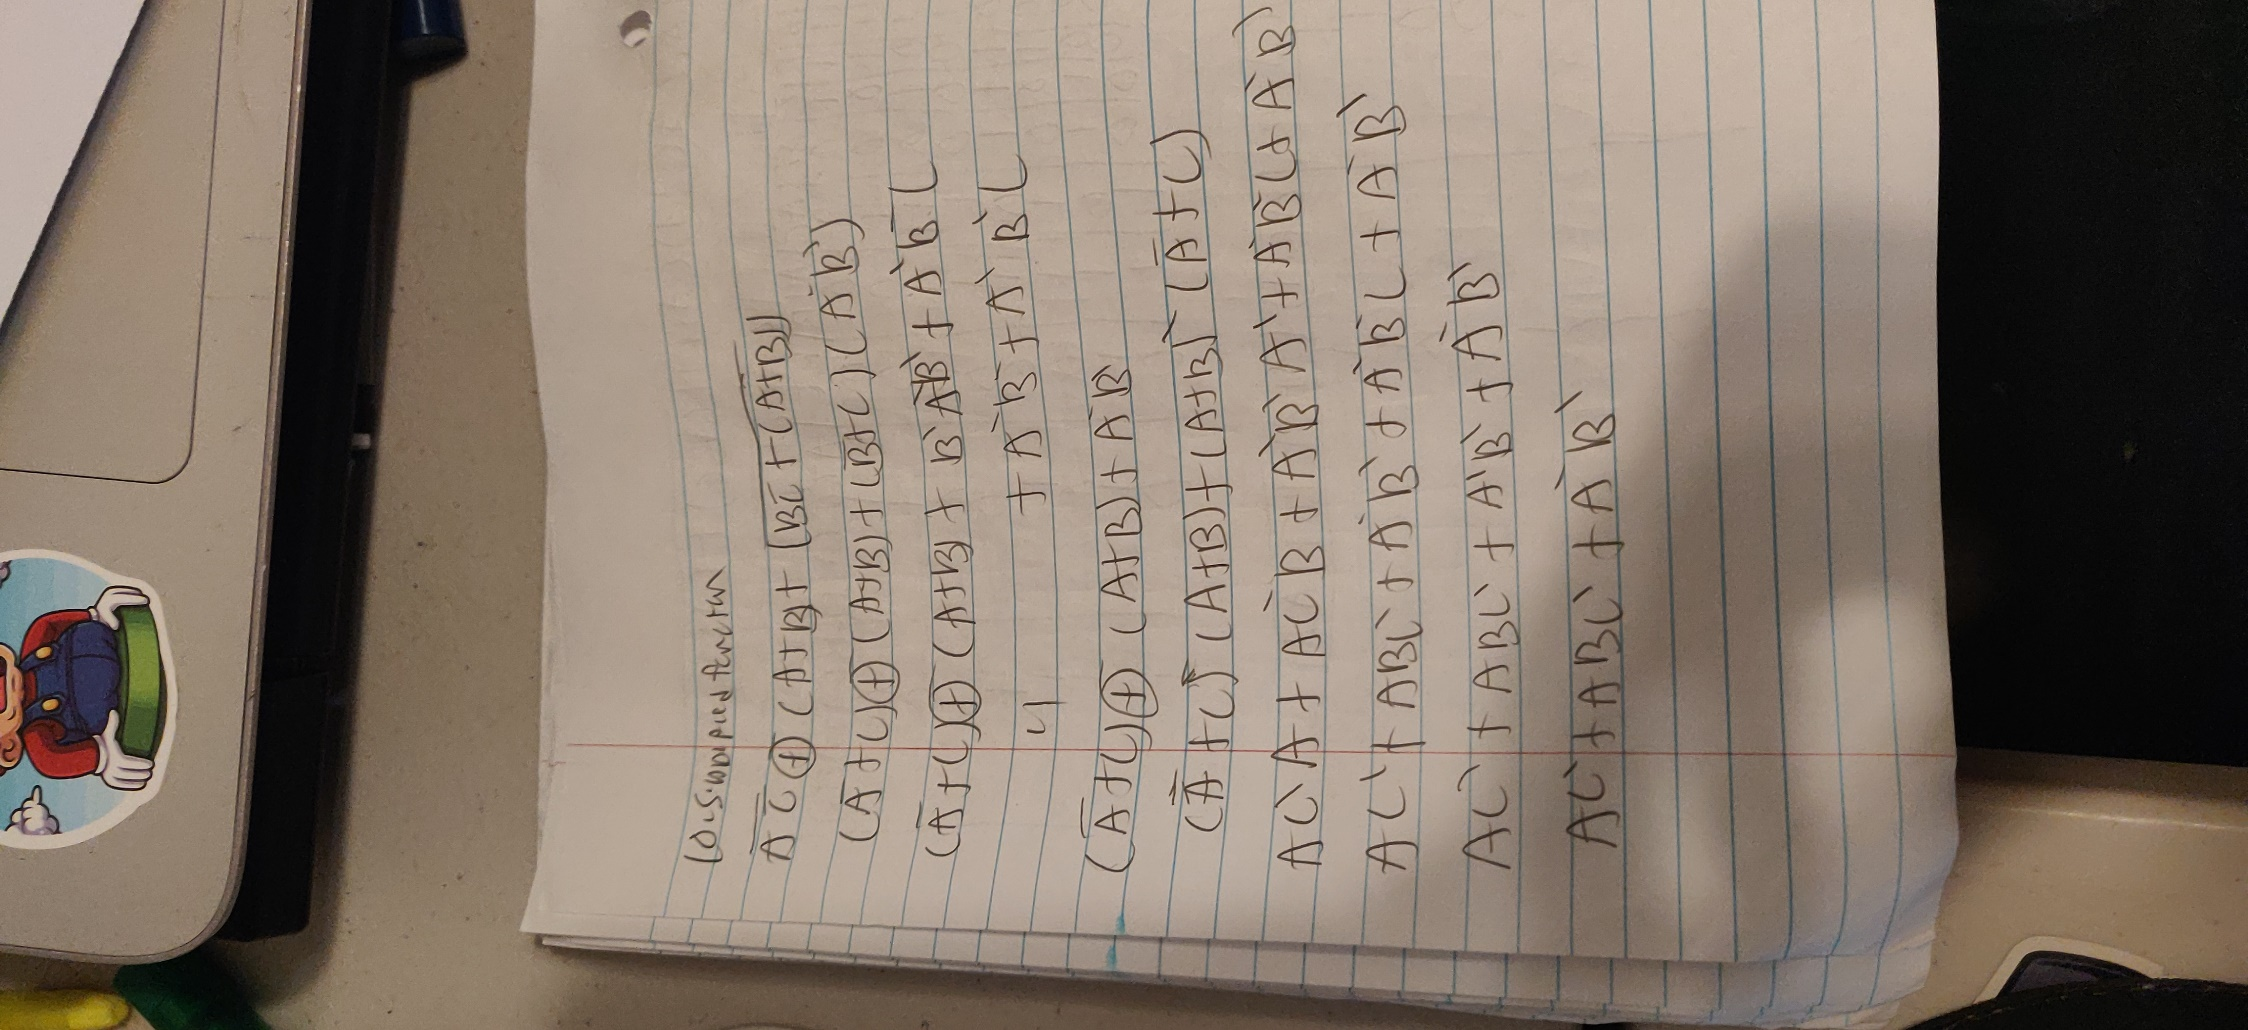 10. Simplified function
A̅C̅ ⊕ (A+B)+ (B̅C̅+(A̅+̅B̅))
(A̅+C) ⊕ (A+B)+(B+C)(A'B')
(A̅+C) ⊕ (A+B) + B'A'B'+A'B̅C
+A'B'+A'B'C
(A̅+C) ⊕ (A+B)+A'B'
(A̅+C)'(A+B)+(A+B)'(A̅+C)
AC'A+AC'B+A'B'A'+A'B'C+A'B'
AC'+ABC'+A'B'+A'B'C+A'B'
AC'+ABC'+A'B'+A'B'
AC'+ABC'+A'B'